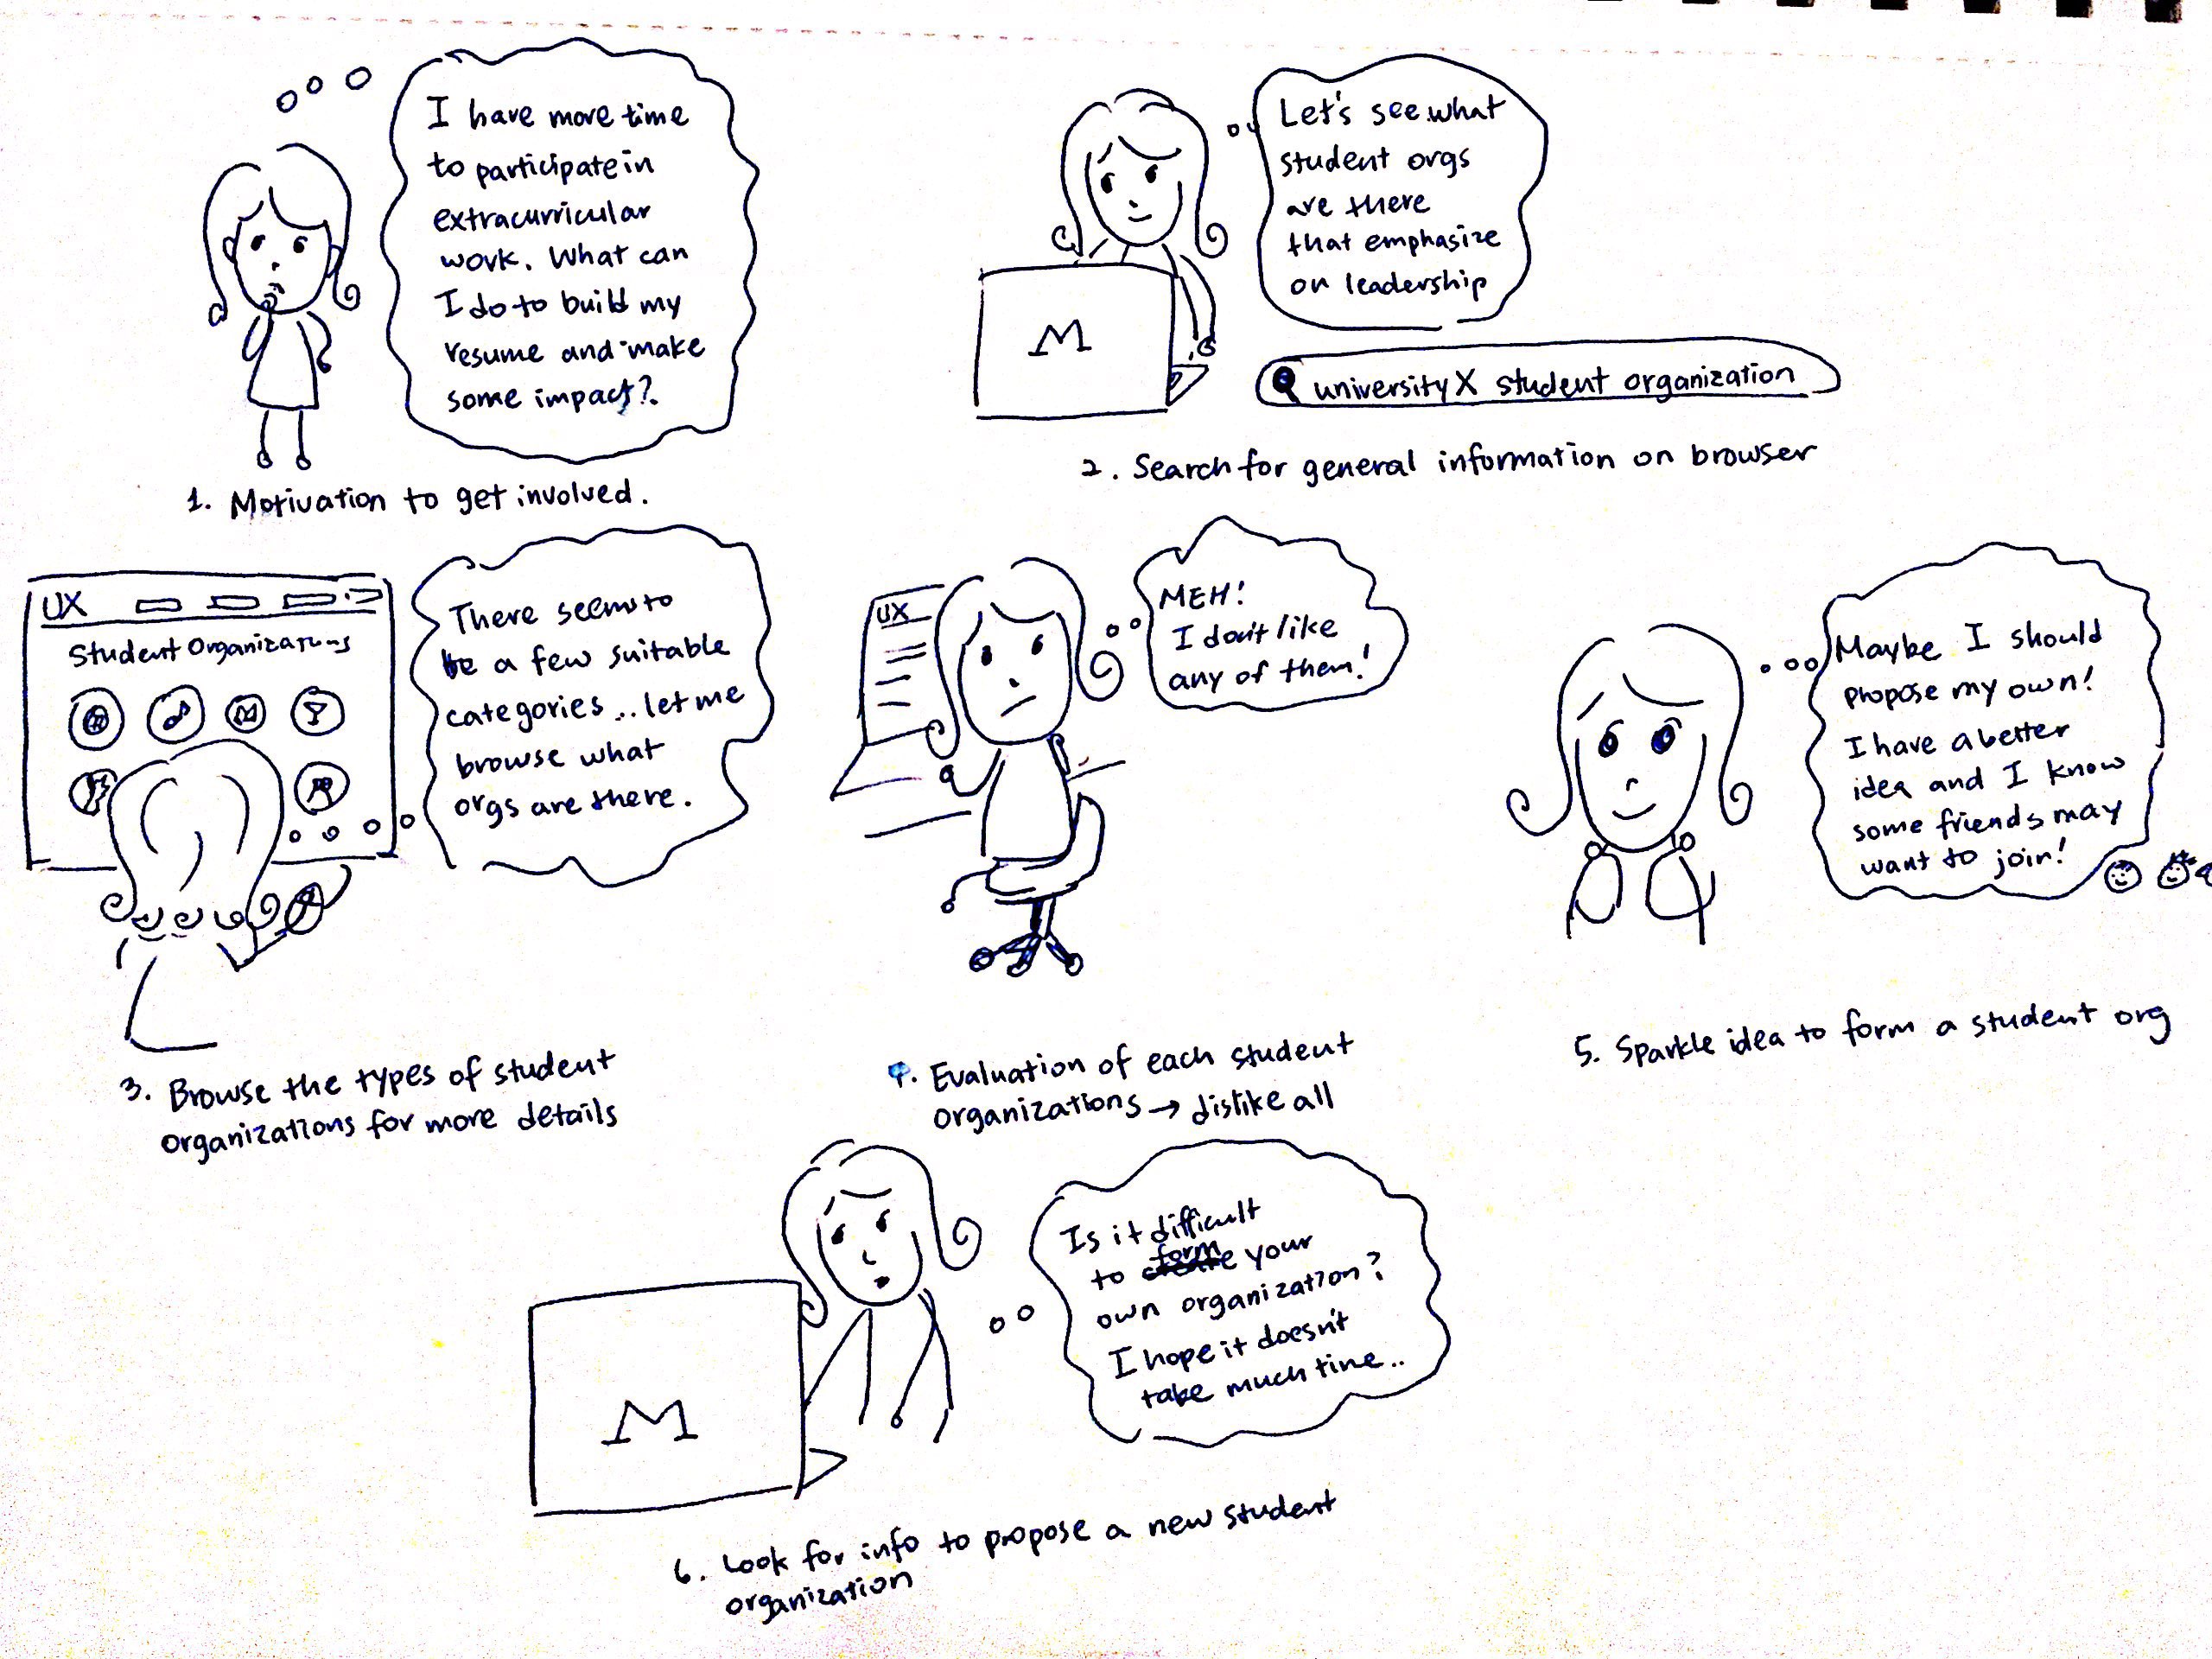 I have more time
to participate in
extracurricular
work. What can
I do to build my
resume and make
some impact?
1. Motivation to get involved.
Let's see what
student orgs
are there
that emphasize
on leadership
M
university X student organization
2. Search for general information on browser
UX
Student Organizations
There seems to
be a few suitable
categories... let me
browse what
orgs are there.
3. Browse the types of student
organizations for more details
UX
MEH!
I don't like
any of them!
4. Evaluation of each student
organizations → dislike all
Maybe I should
propose my own!
I have a better
idea and I know
some friends may
want to join!
5. Sparkle idea to form a student org
M
Is it difficult
to form your
own organization?
I hope it doesn't
take much time..
6. Look for info to propose a new student
organization